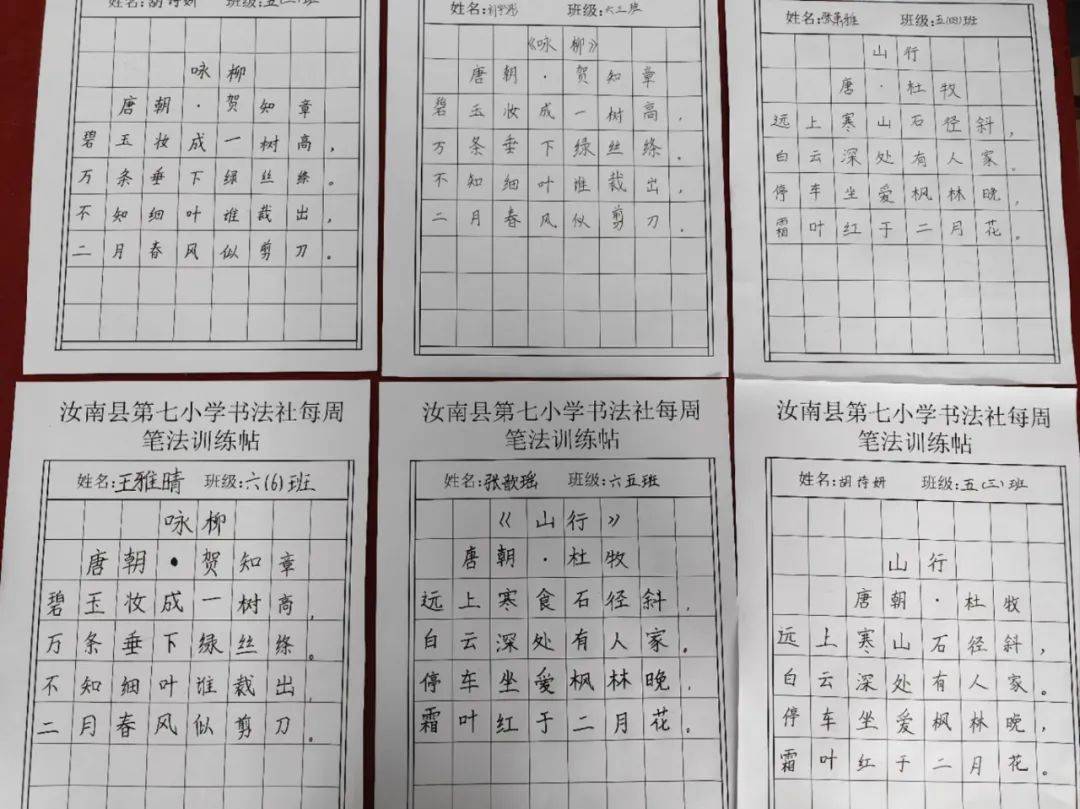 姓名:胡诗妍 班级:
咏柳
唐朝·贺知章
碧玉妆成一树高，
万条垂下绿丝绦。
不知细叶谁裁出，
二月春风似剪刀。
姓名: 班级:六三班
《咏柳》
唐朝·贺知章
碧玉妆成一树高，
万条垂下绿丝绦。
不知细叶谁裁出，
二月春风似剪刀。
姓名: 班级:五(四)班
山行
唐·杜牧
远上寒山石径斜，
白云深处有人家。
停车坐爱枫林晚，
霜叶红于二月花。
汝南县第七小学书法社每周
笔法训练帖
姓名:王雅晴 班级:六(6)班
咏柳
唐朝·贺知章
碧玉妆成一树高，
万条垂下绿丝绦。
不知细叶谁裁出，
二月春风似剪刀。
汝南县第七小学书法社每周
笔法训练帖
姓名:张歆瑶 班级:六五班
《山行》
唐朝·杜牧
远上寒食石径斜，
白云深处有人家。
停车坐爱枫林晚，
霜叶红于二月花。
汝南县第七小学书法社每周
笔法训练帖
姓名:胡诗妍 班级:五(三)班
山行
唐朝·杜牧
远上寒山石径斜，
白云深处有人家。
停车坐爱枫林晚，
霜叶红于二月花。